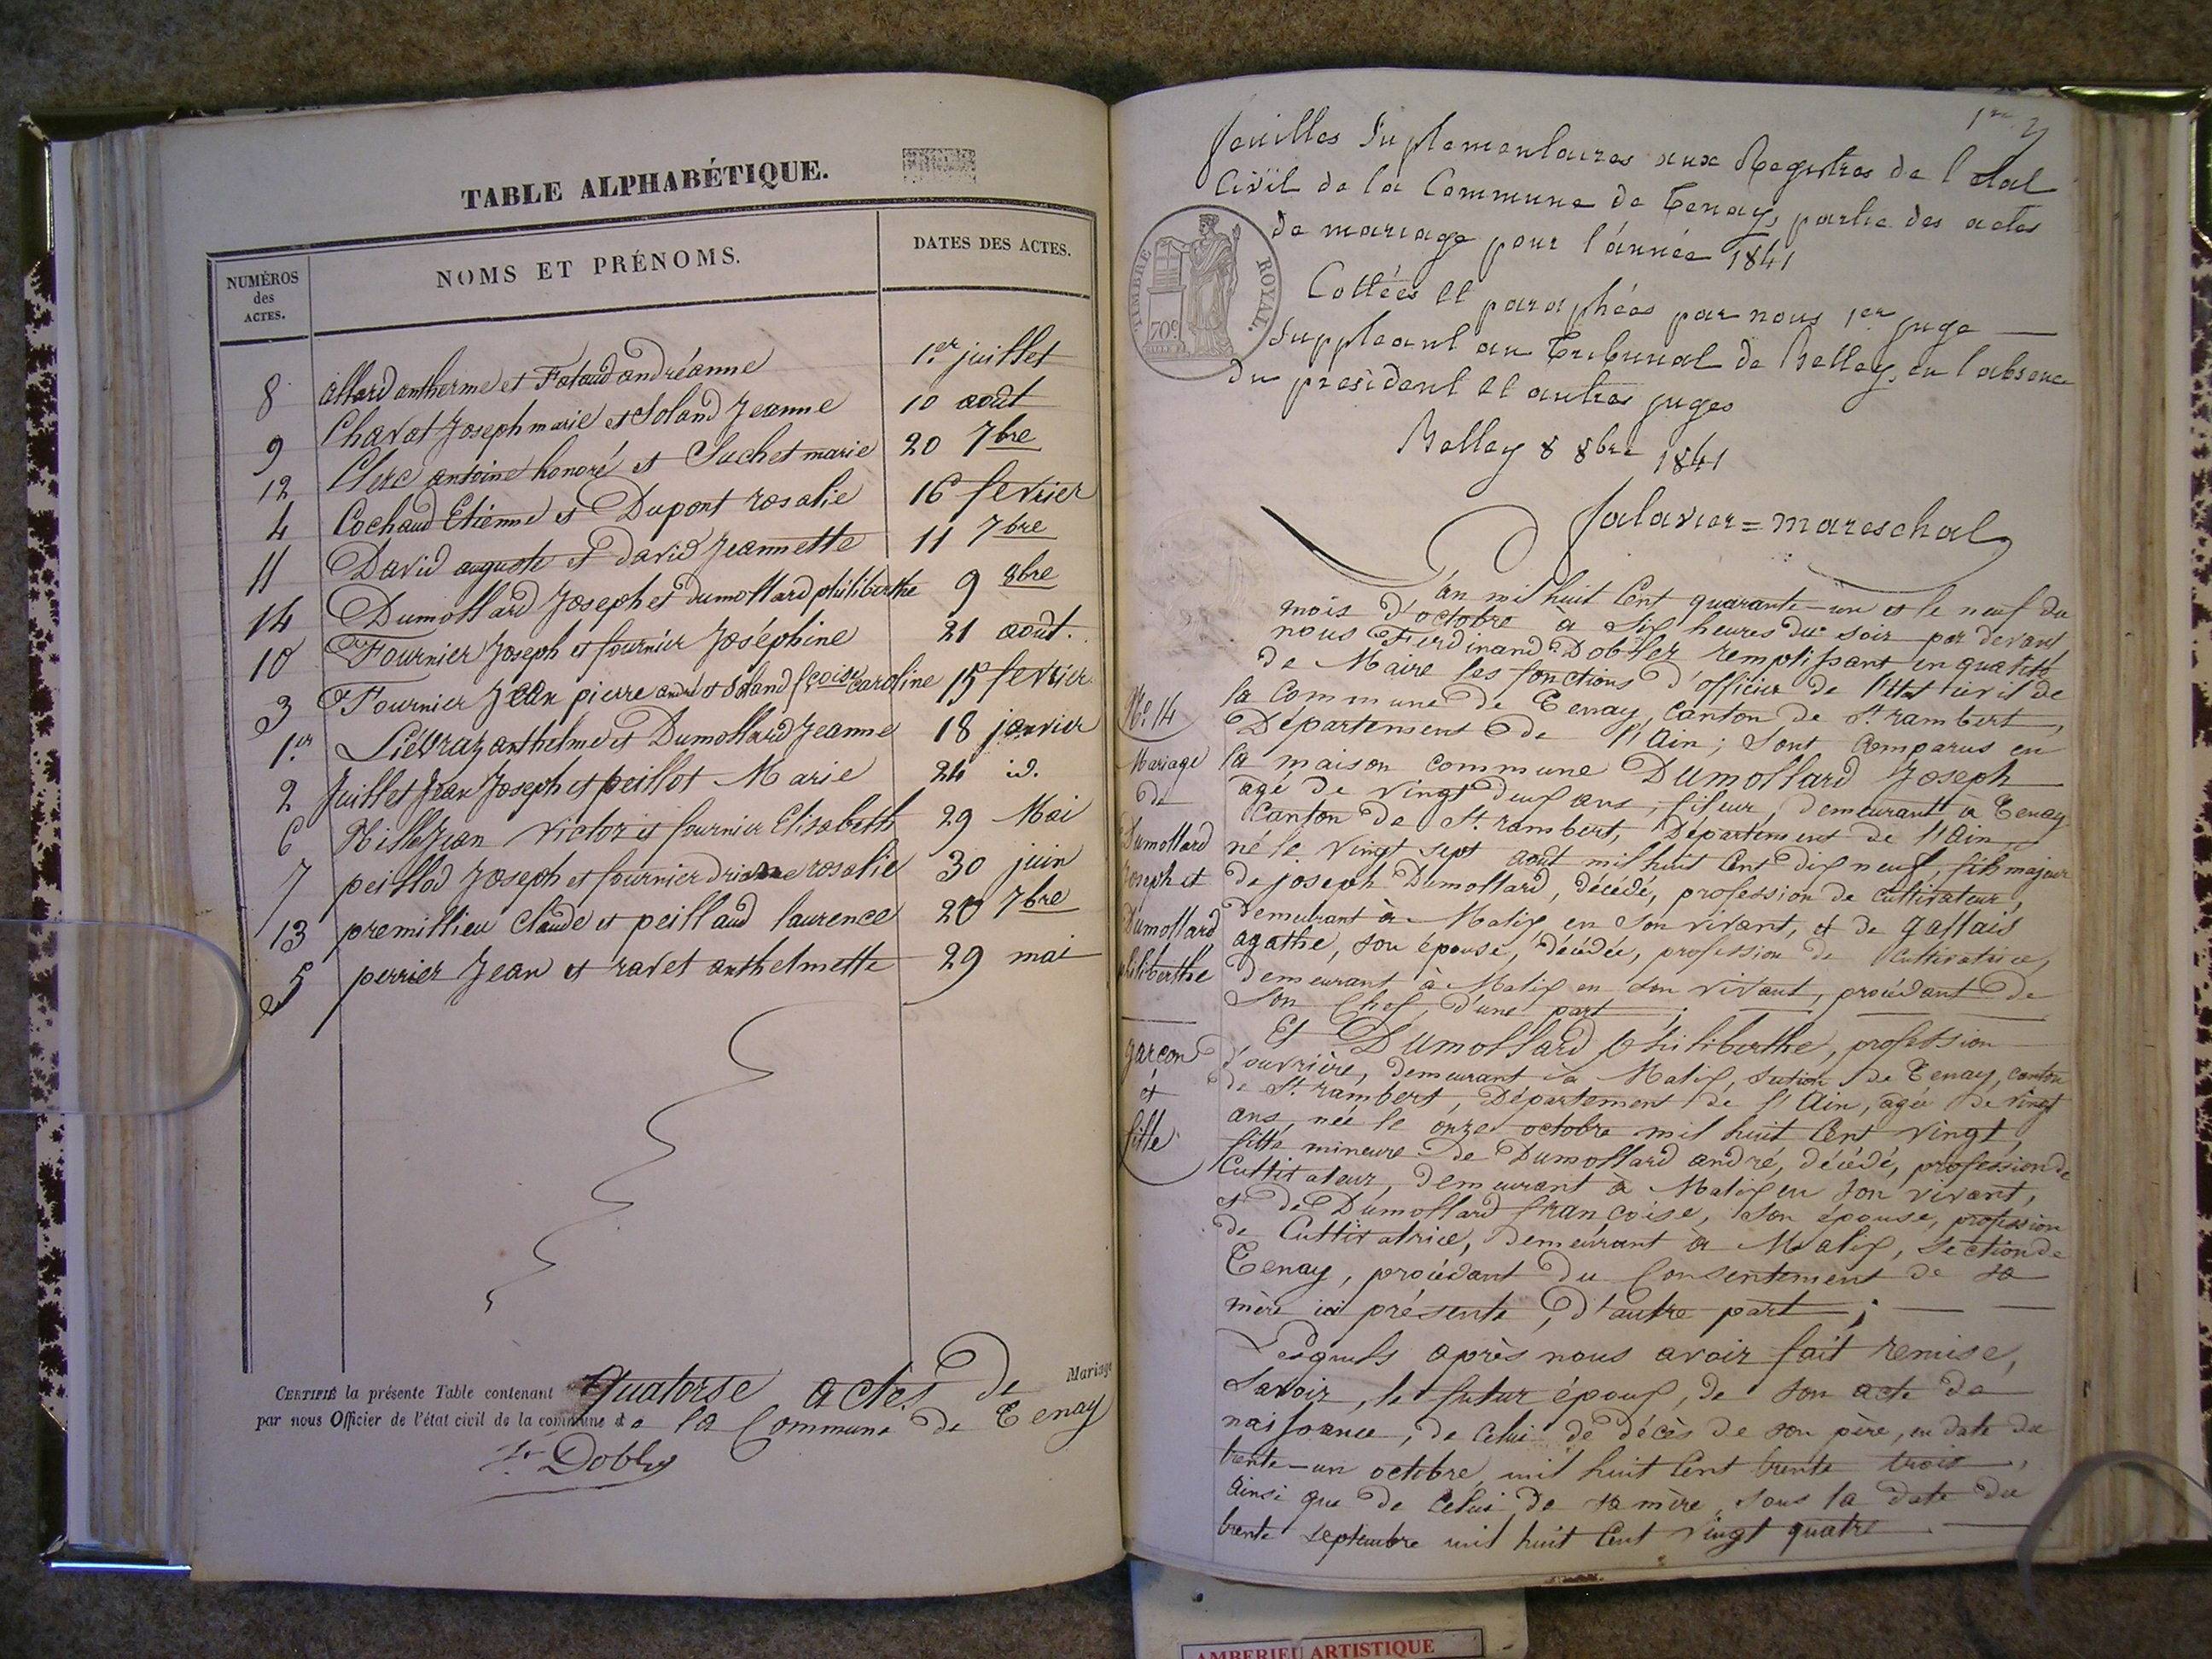 TABLE ALPHABÉTIQUE.
NUMÉROS
des
ACTES.
NOMS ET PRÉNOMS.
DATES DES ACTES.
8 allard antherme et Fataud andréanne 1.er juillet
9 Chavat Joseph marie et Soland Jeanne 10 août
12 Clerc antoine honoré et Suchet marie 20 7bre
4 Cochaud Etienne et Dupont rosalie 16 fevrier
11 David auguste et david Jeannette 11 7bre
14 Dumollard Joseph et dumollard philiberthe 9 8bre
10 Fournier Joseph et fournier Joséphine 21 août.
3 Fournier Jean pierre andré et Soland fçoise caroline 15 fevrier
1.er Liévraz anthelme et Dumollard Jeanne 18 janvier
2 Juillet Jean Joseph et peillot Marie 24 id.
6 Jean victor et fournier Elisabeth 29 Mai
7 peillod Joseph et fournier rosalie 30 juin
13 premillieu Claude et peillaud laurence 20 7bre
5 perrier Jean et ravet anthelmette 29 mai
CERTIFIÉ la présente Table contenant quatorse actes de Mariage
par nous Officier de l'état civil de la commune de la Commune de Tenay
Dobler
1re
feuilles Suplementaires aux Registres de l etat
Civil de la Commune de Tenay, partie des actes
de mariage pour l'année 1841
TIMBRE ROYAL.
70c.
Cottées et paraphées par nous 1er juge
Suppléant au Tribunal de Belley, en l'absence
du président et autres juges
Belley 8 8bre 1841
Jalavier = mareschal
an mil huit Cent quarante-un et le neuf du
mois d'octobre à Six heures du soir par devant
nous Ferdinand Dobler remplissant en qualité
de Maire les fonctions d'officier de l'état civil de
la commune de Tenay, Canton de St. rambert,
Departement de l'Ain; Sont Comparus en
la maison commune Dumollard Joseph
agé de vingt deux ans, fileur, demeurant à Tenay
Canton de St. rambert, Département de l'Ain,
né le vingt sept août mil huit Cent dix neuf, fils majeur
de joseph Dumollard, décédé, profession de Cultivateur,
demeurant à Malix en Son vivant, et de gallais
agathe, son épouse, décédée, profession de Cultivatrice,
demeurant à Malix en son vivant, procédant de
Son Chef, d'une part;
No. 14
Mariage
de
Dumollard
Joseph et
Dumollard
philiberthe
garcon
et
fille
Et Dumollard philiberthe, profession
d'ouvrière, demeurant à Malix, section de Tenay, canton
de St. rambert, Département de l'Ain, agée de vingt
ans, née le onze octobre mil huit Cent vingt,
fille mineure de Dumollard andré, décédé, profession de
Cultivateur, demeurant à Malix en son vivant,
et de Dumollard françoise, Son épouse, profession
de Cultivatrice, demeurant à Malix, Section de
Tenay, procédant du Consentement de sa
mère ici présente, d'autre part;
Lesquels après nous avoir fait remise,
Savoir, le futur époux, de son acte de
naissance, de Celui de décès de son père, en date du
trente-un octobre mil huit Cent trente trois,
ainsi que de Celui de sa mère, sous la date du
trente septembre mil huit Cent vingt quatre
AMBERIEU ARTISTIQUE